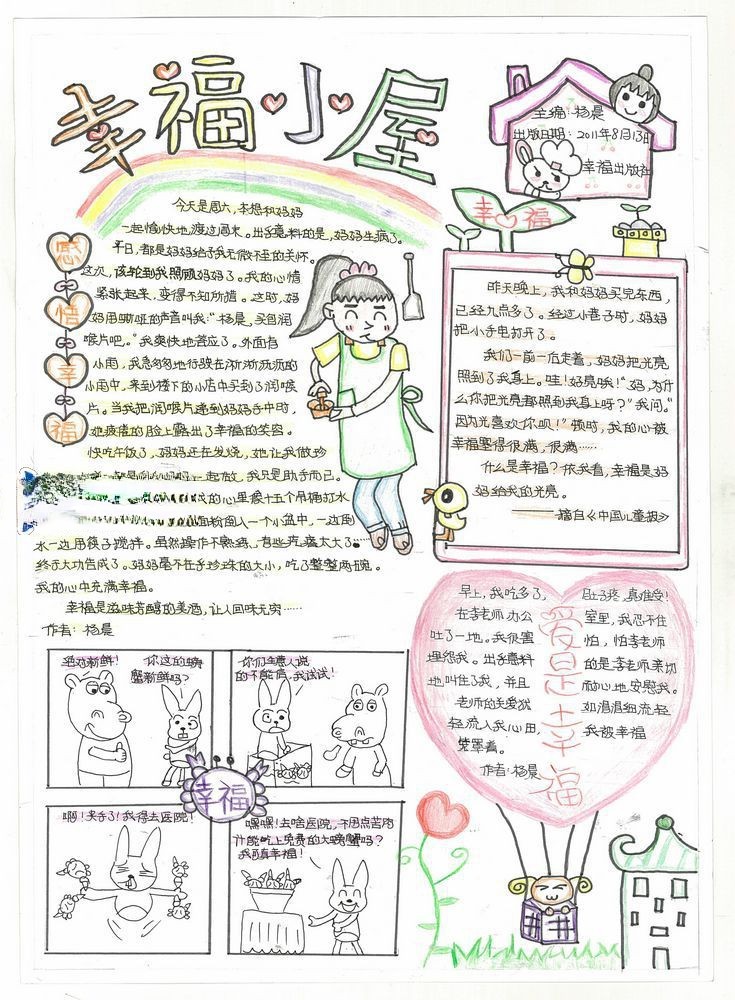 幸福小屋
主编:杨晨
出版日期:2011年8月13日
幸福出版社
感情幸福
今天是周六,本想和妈妈
一起愉快地渡过周末。出乎意料的是,妈妈生病了。
平日,都是妈妈给予我无微不至的关怀。
这次,该轮到我照顾妈妈了。我的心情
紧张起来,变得不知所措。这时,妈
妈用嘶哑的声音叫我:“杨晨,买包润
喉片吧。”我爽快地答应了。外面有
小雨,我急匆匆地行驶在淅淅沥沥的
小雨中,来到楼下的小店中买到了润喉
片。当我把润喉片递到妈妈手中时,
她疲倦的脸上露出了幸福的笑容。
快吃午饭了,妈妈还在发烧,她让我做珍
一起放,我只是助手而已。
的心里像十五个吊桶打水
面粉倒入一个小盆中,一边倒
水一边用筷子搅拌。虽然操作不熟练,有些疙瘩太大了……
终于大功告成了。妈妈毫不在乎珍珠的大小,吃了整整两碗。
我的心中充满幸福。
幸福是滋味芳醇的美酒,让人回味无穷……
作者:杨晨
幸福
昨天晚上,我和妈妈买完东西,
已经九点多了。经过小巷子时,妈妈
把小手电打开了。
我们一前一后走着,妈妈把光亮
照到了我身上。哇!好亮哦!“妈,为什
么你把光亮都照到我身上呀?”我问。“
因为光喜欢你呗!”顿时,我的心被
幸福塞得很满,很满……
什么是幸福?依我看,幸福是妈
妈给我的光亮。
——摘自《中国儿童报》
爱是幸福
早上,我吃多了,肚子疼,真难受!
在李老师办公室里,我忍不住
吐了一地。我很害怕,怕李老师
埋怨我。出乎意料的是李老师亲切
地叫住了我,并且耐心地安慰我。
老师的关爱犹如温温细流,轻
轻流入我心田,我被幸福
笼罩着。
作者:杨晨
绝对新鲜!
你这的螃
蟹新鲜吗?
你们生意人说
的不能信,我试试!
幸福
啊!夹手了!我得去医院!
嘿嘿!去啥医院,不用点苦肉
计能吃上免费的大螃蟹吗?
我可真幸福!